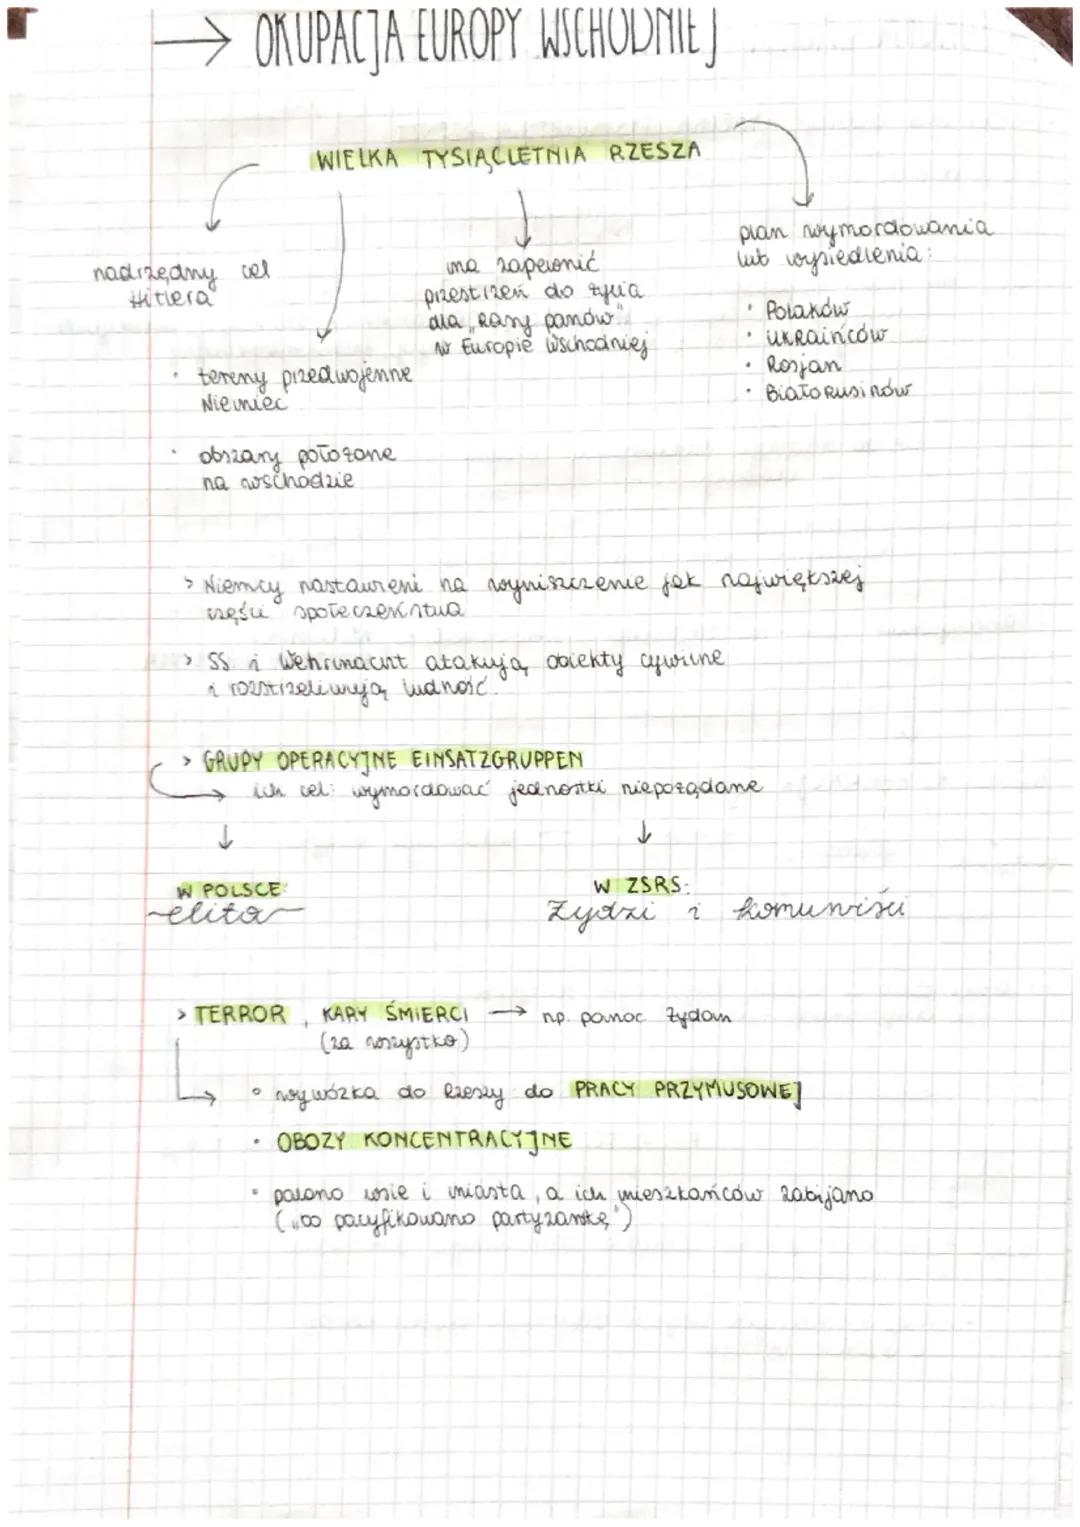 → OKUPACJA EUROPY WSCHODNIEJ
WIELKA TYSIĄCLETNIA RZESZA
nadrzędny cel
Hitlera
• tereny przedwojenne
Niemiec
• obszary położone
na wschodzie
ma zapewnić
przestrzeń do życia
dla „Rasy panów"
w Europie Wschodniej
plan wymordowania
lub wysiedlenia:
• Polaków
• Ukraińców
• Rosjan
• Białorusinów
> Niemcy nastawieni na wyniszczenie jak największej
części społeczeństwa
> SS i Wehrmacht atakują obiekty cywilne
i rozstrzeliwują ludność.
> GRUPY OPERACYJNE EINSATZGRUPPEN
→ ich cel: wymordować jednostki niepożądane
↓ ↓
W POLSCE:
~elita~
W ZSRS:
Żydzi i komuniści
> TERROR, KARY ŚMIERCI → np. pomoc Żydom
(za wszystko)
→ • wywózka do Rzeszy do PRACY PRZYMUSOWEJ
• OBOZY KONCENTRACYJNE
• palono wsie i miasta, a ich mieszkańców zabijano
(„bo pacyfikowano partyzantkę")